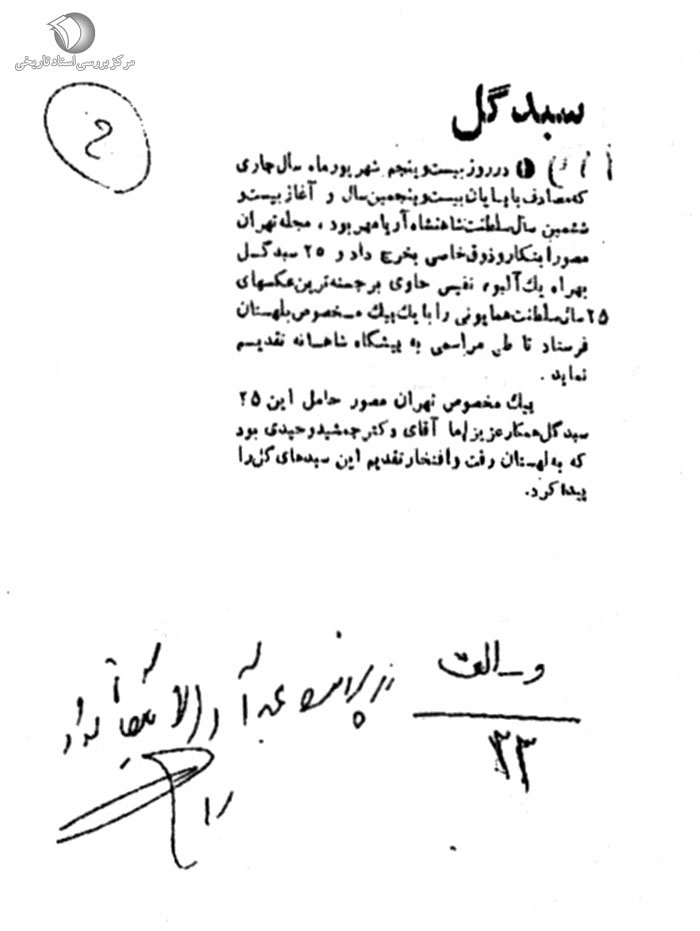 مرکز بررسی اسناد تاریخی
سبد گل
در روز بیست و پنجم شهریور ماه سال جاری
که مصادف با پایان بیست و پنجمین سال و آغاز بیست و
ششمین سال سلطنت شاهنشاه آریامهر بود ، مجله تهران
مصور ابتکار و ذوق خاصی بخرج داد و ۲۵ سبد گل
بهمراه یک آلبوم نفیس حاوی برجسته‌ترین عکسهای
۲۵ سال سلطنت همایونی را با یک پیک مخصوص بلهستان
فرستاد تا طی مراسمی به پیشگاه شاهانه تقدیم
نماید .
پیک مخصوص تهران مصور حامل این ۲۵
سبد گل همکار عزیز ما آقای دکتر جمشید وحیدی بود
که به لهستان رفت و افتخار تقدیم این سبدهای گل را
پیدا کرد.
۳۳